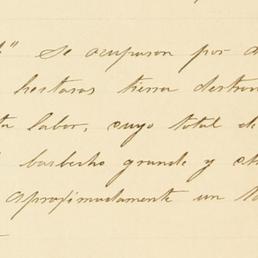 " Se ocuparon por
hectaras tierra
labor, cuyo total de
barbecho grande y
aproximadamente un